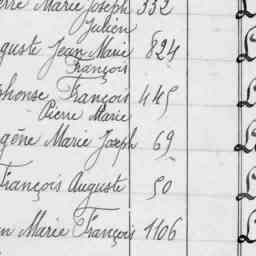 erre Marie Joseph 332
Julien
guste Jean Marie 824
François
phonse François 445
Pierre Marie
gène Marie Joseph 69
François Auguste 50
n Marie François 1106